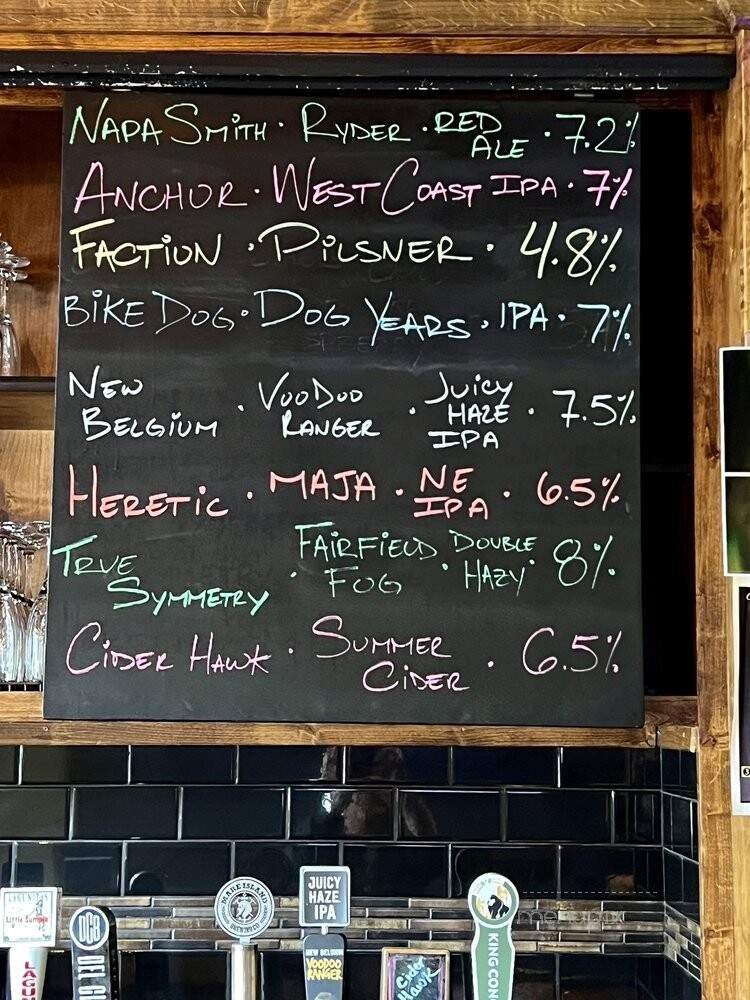 NAPA SMITH · RYDER · RED ALE · 7.2%
ANCHOR · WEST COAST IPA · 7%
FACTION · PILSNER · 4.8%
BIKE DOG · DOG YEARS · IPA · 7%
NEW BELGIUM · VOODOO RANGER · JUICY HAZE IPA · 7.5%
HERETIC · MAJA · NE IPA · 6.5%
TRUE SYMMETRY · FAIRFIELD FOG · DOUBLE HAZY · 8%
CIDER HAWK · SUMMER CIDER · 6.5%
LAGU
DCB
DEL C
MARE ISLAND
BREWING CO
JUICY
HAZE
IPA
NEW BELGIUM
VOODOO
RANGER
Cider
Hawk
KING CON